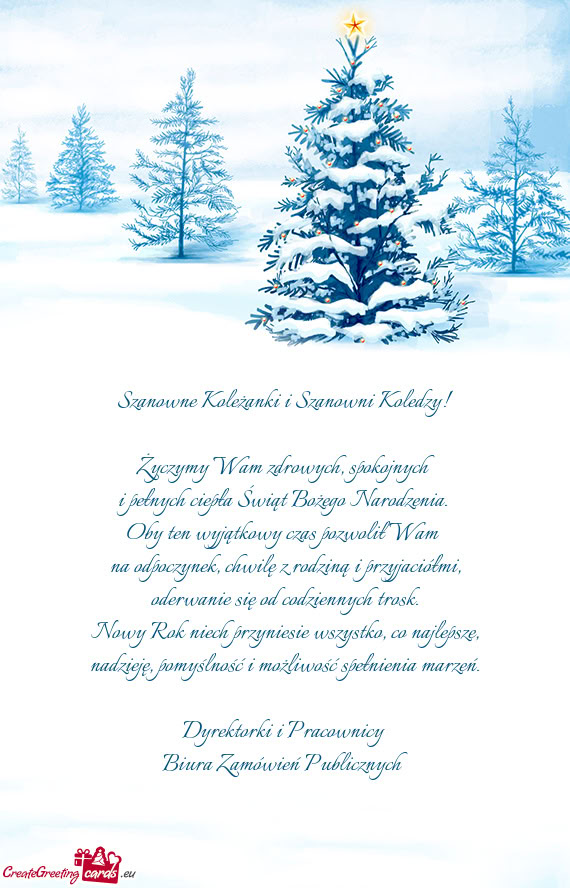 Szanowne Koleżanki i Szanowni Koledzy!
Życzymy Wam zdrowych, spokojnych
i pełnych ciepła Świąt Bożego Narodzenia.
Oby ten wyjątkowy czas pozwolił Wam
na odpoczynek, chwilę z rodziną i przyjaciółmi,
oderwanie się od codziennych trosk.
Nowy Rok niech przyniesie wszystko, co najlepsze,
nadzieję, pomyślność i możliwość spełnienia marzeń.
Dyrektorki i Pracownicy
Biura Zamówień Publicznych
CreateGreeting cards .eu